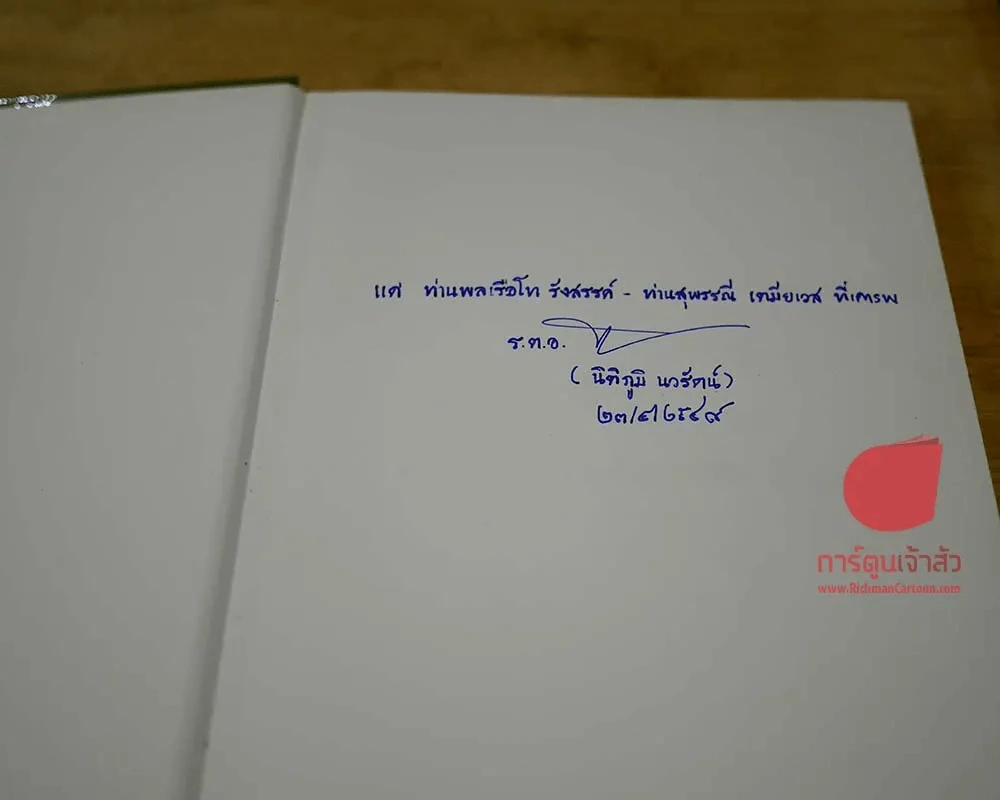 แด่ ท่านพลเรือโท รังสรรค์ - ท่านสุพรรณี เตมียเวส ที่เคารพ
ร.ต.อ.
( นิติภูมิ นวรัตน์ )
๒๓/๘/๒๕๔๙
การ์ตูนเจ้าสัว
www.RichmanCartoon.com